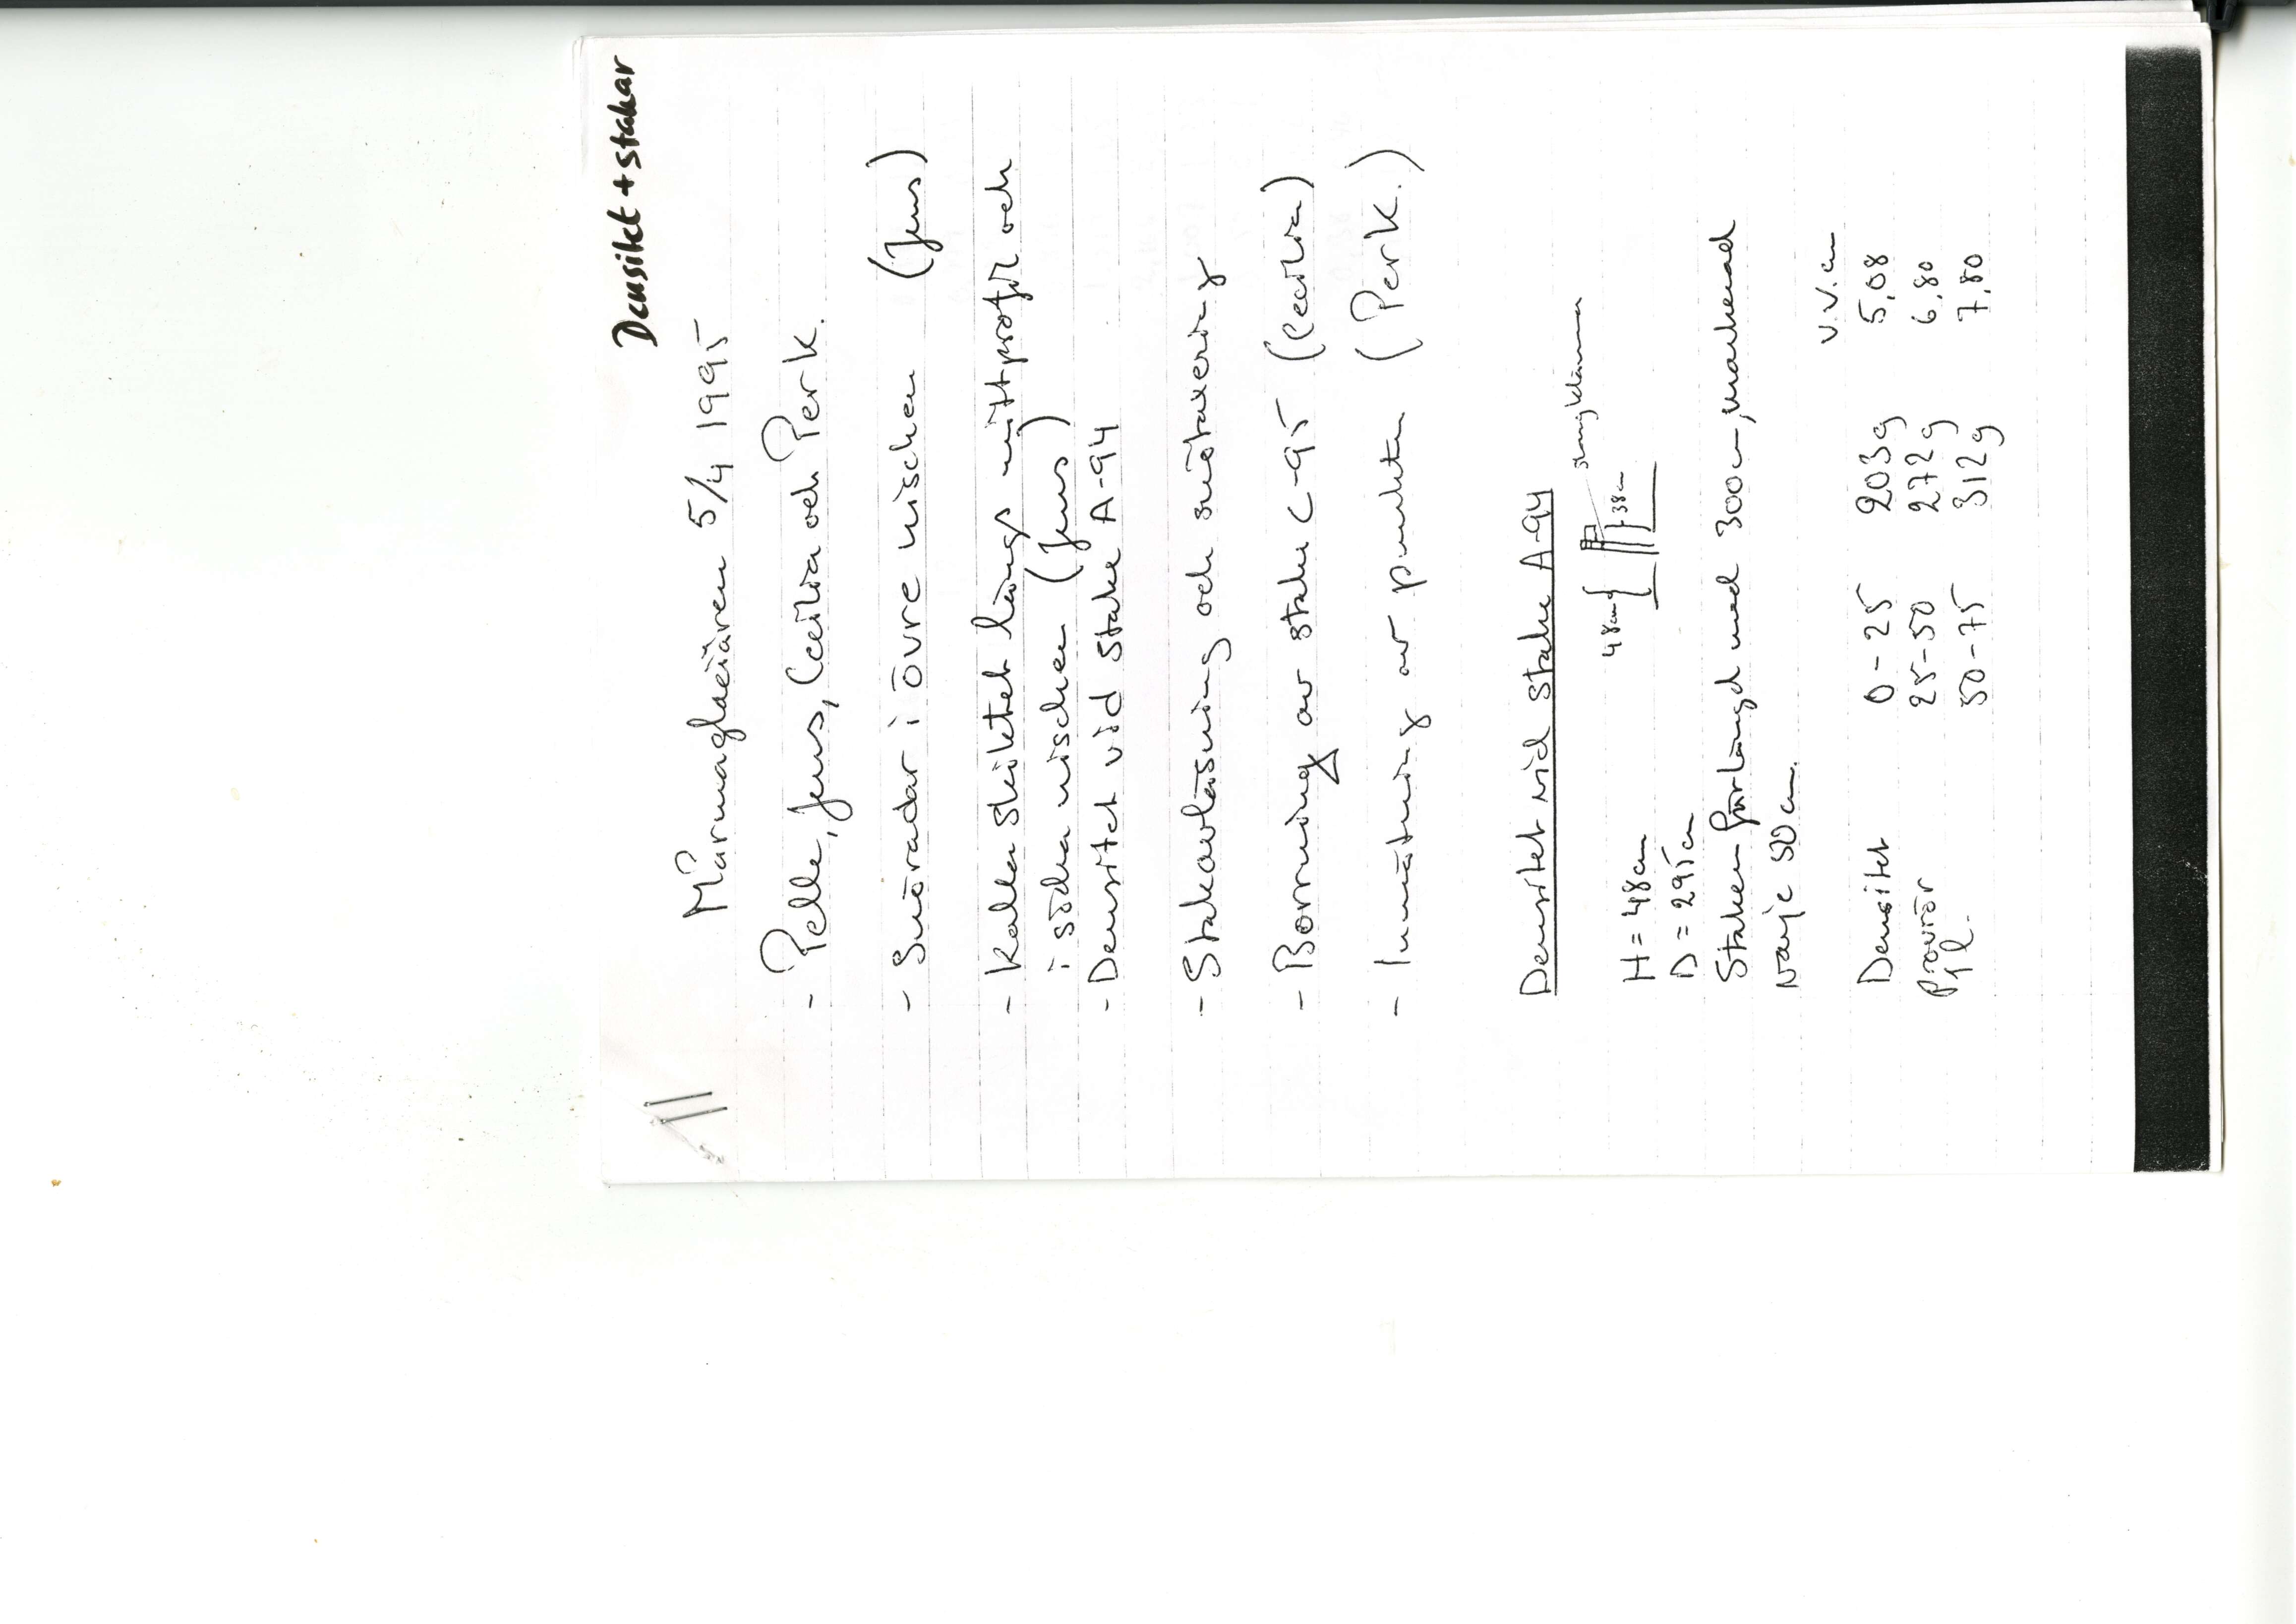 Densitet + stakar
Mårmaglaciären 5/4 1995
- Pelle, Jens, Cecilia och Per K.
- Snöradar i övre nischen (Jens)
- Kalla skiktet längs mittprofil och
i södra nischen (Jens)
- Densitet vid stake A-94
- Stakavläsning och snötaxering
- Borrning av stake C-95 (Cecilia)
- Inmätning av punkter (Per K.)
Densitet vid stake A-94
slangklämma
48cm 38cm
H = 48cm
D = 295cm
Staken förlängd med 300cm, markerad
varje 50 cm.
V.V. cm
Densitet 0-25 203g 5,08
provrör 25-50 272g 6,80
1 l. 50-75 312g 7,80